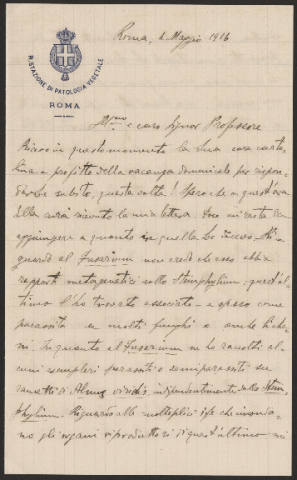 R. STAZIONE DI PATOLOGIA VEGETALE
ROMA
Roma, Maggio 1916
e caro Signor Professore
Ricevo in questo momento la Sua cara carto
lina e profitto della vacanza domenicale per rispon
derLe subito, questa volta! Spero che a quest'ora
Ella avrà ricevuto la mia lettera. Poco mi resta da
aggiungere a quanto in quella Le dicevo. Ri
guardo al Fusarium non credo che esso abbia
rapporti metagenetici collo Stemphylium. Quest'ul
timo l'ho trovato associato e spesso come
parassita su molti funghi e anche liche
ni. In quanto al Fusarium ne ho raccolti al
cuni esemplari parassiti o semiparassiti su
rametti di Alnus viridis, indipendentemente dallo Stem
phylium. Riguardo alle molteplici ife che invado
no gli organi riproduttori di quest'ultimo mi